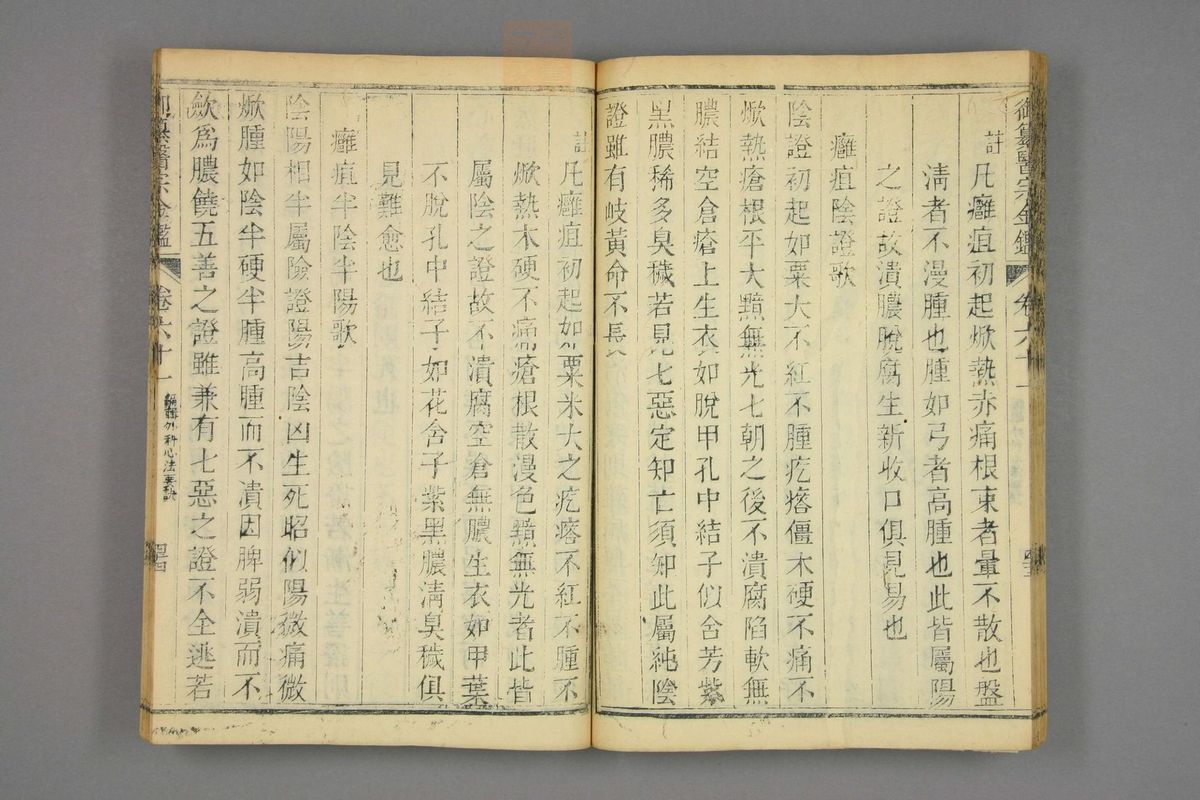 御纂醫宗金鑑 卷六十一 四三
註 凡癰疽初起焮熱赤痛根束者暈不散也盤
清者不漫腫也腫如弓者高腫也此皆屬陽
之證故潰膿脫腐生新收口俱見易也
癰疽陰證歌
陰證初起如粟大不紅不腫疙瘩僵木硬不痛不
焮熱瘡根平大黯無光七朝之後不潰腐陷軟無
膿結空倉瘡上生衣如脫甲孔中結子似含芳紫
黑膿稀多臭穢若見七惡定知亡須知此屬純陰
證雖有岐黃命不長
註 凡癰疽初起如粟米大之疙瘩不紅不腫不
焮熱木硬不痛瘡根散漫色黯無光者此皆
屬陰之證故不潰腐空倉無膿生衣如甲葉
不脫孔中結子如花含子紫黑膿清臭穢俱
見難愈也
癰疽半陰半陽歌
陰陽相半屬險證陽吉陰凶生死昭似陽微痛微
焮腫如陰半硬半腫高腫而不潰因脾弱潰而不
斂為膿饒五善之證雖兼有七惡之證不全逃若
御纂醫宗金鑑 卷六十一 編輯外科心法要訣 四四